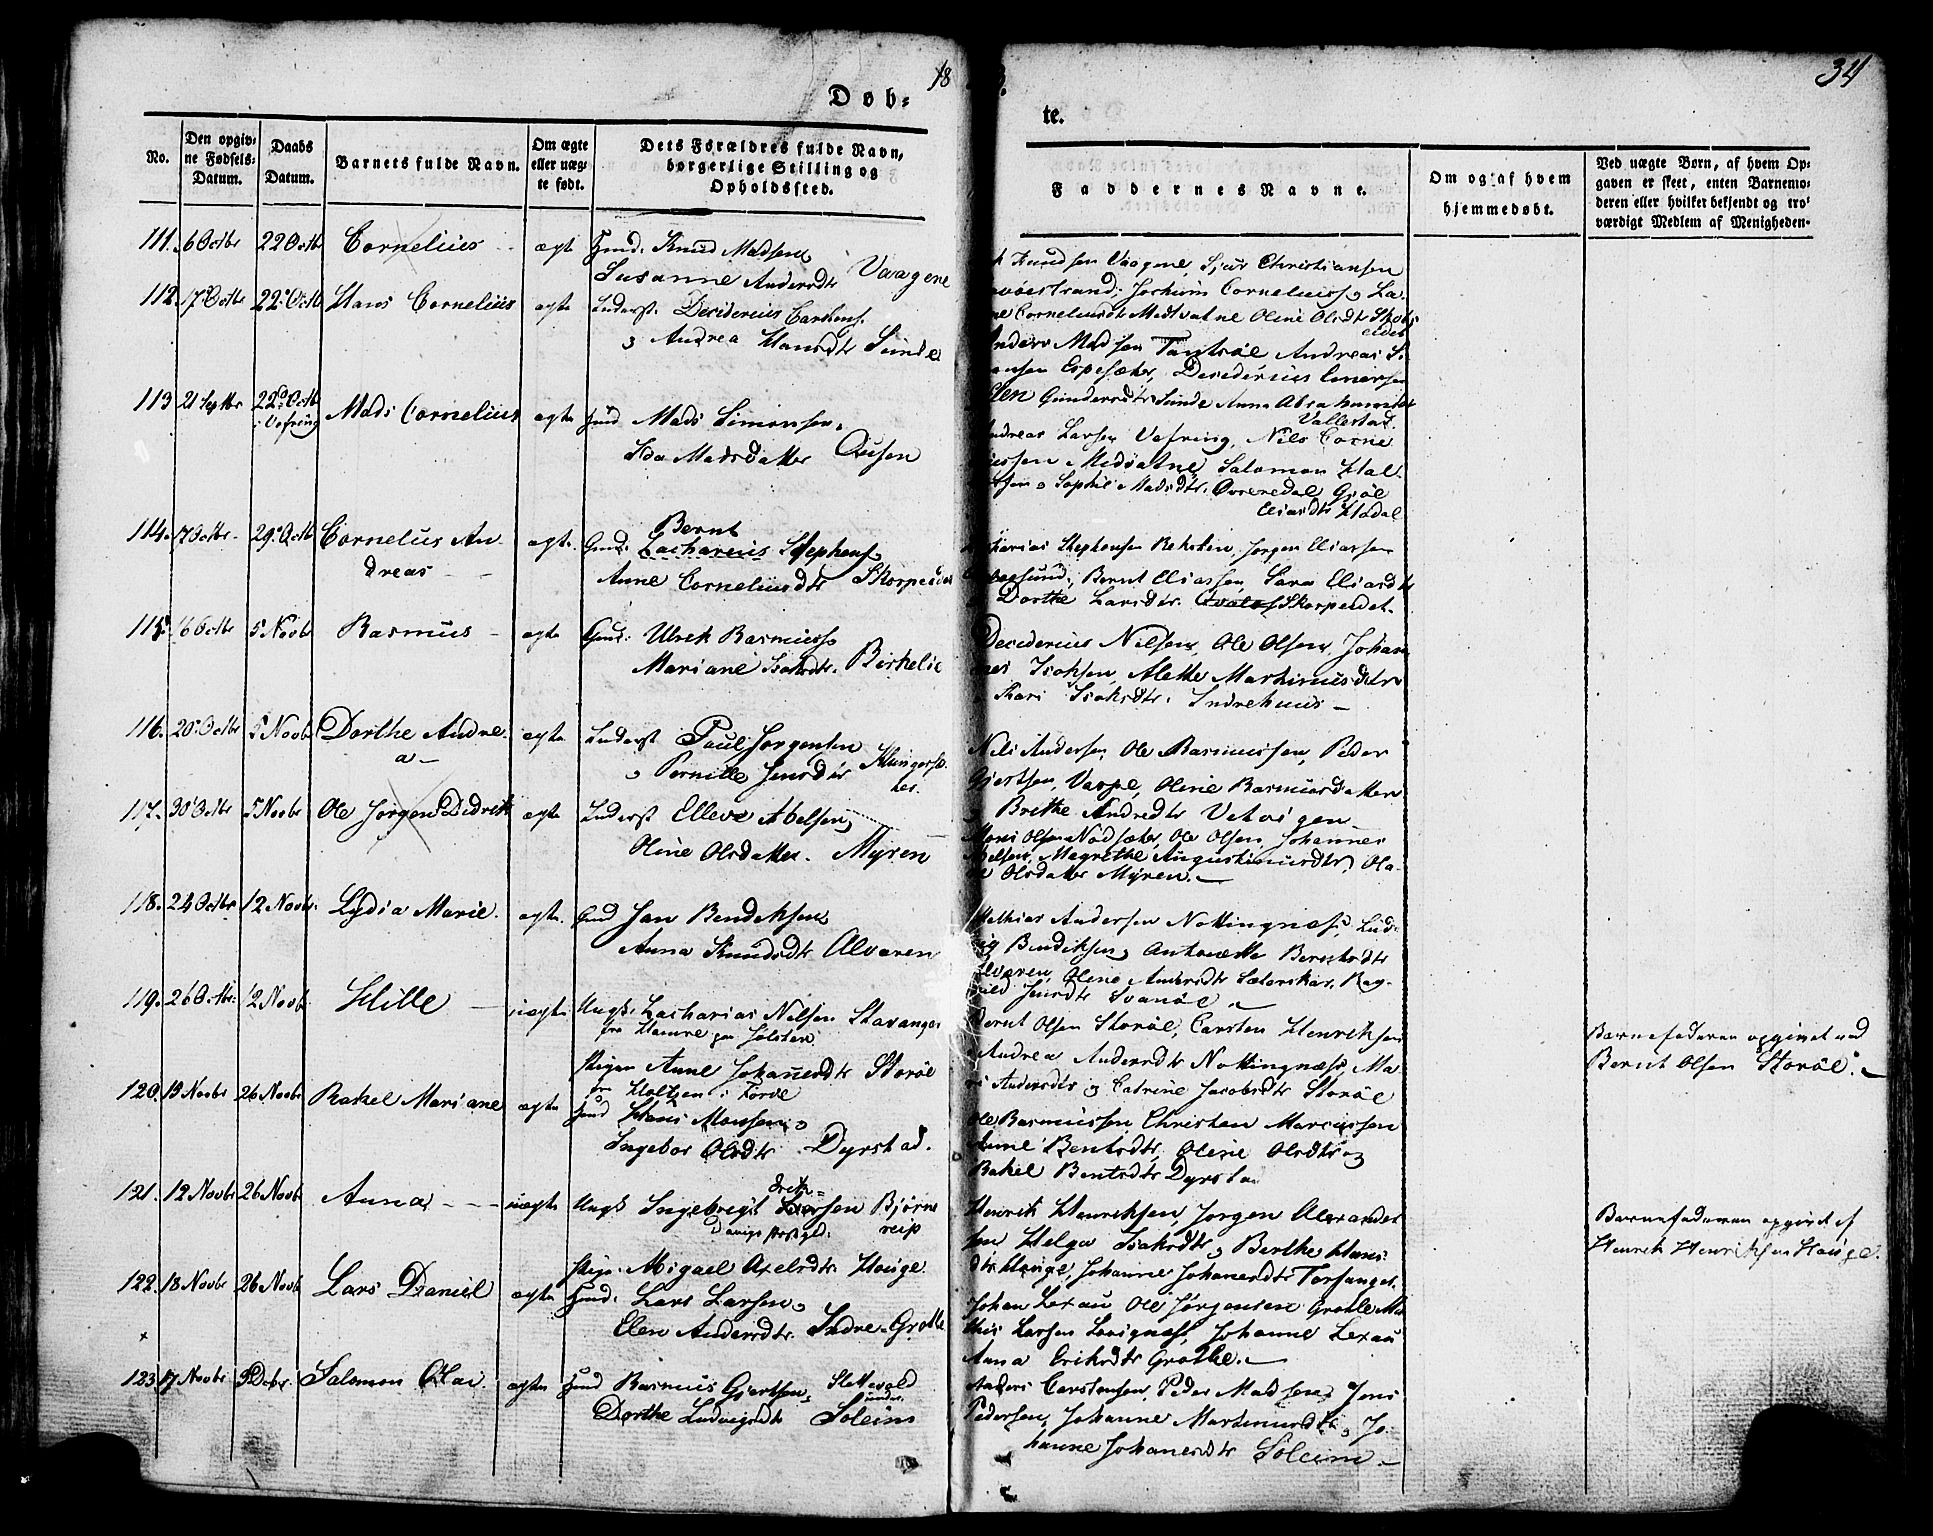 18
34
Døb-
te.
No.
Den opgiv-
ne Fødsels-
Datum.
Daabs
Datum.
Barnets fulde Navn.
Om ægte
eller uæg-
te født.
Dets Forældres fulde Navn,
borgerlige Stilling og
Opholdssted.
Faddernes Navne.
Om og af hvem
hjemmedøbt.
Ved uægte Børn, af hvem Op-
gaven er skeet, enten Barnemo-
deren eller hvilket bekjendt og tro-
værdigt Medlem af Menigheden.
111. 6 Octbr 22 Octb Cornelius ægte Gmd. Knud Madsen
Susanne Andersdtr Vaagene
Knudsen Vaagene, Sjur Christiansen
112. 17 Octbr 22 Octb Hans Cornelius ægte Inderst. Deciderius Carstens.
o Andrea Hansdtr Sunde
Jochim Corneliuss o La-
ne Corneliusdtr Medvatne Oline Olsdtr
Anders Madsen Tantsøe Andreas
Espesæter, Deciderius Einersen
113 21 Septbr 22 Octb Mads Cornelius ægte Gmd Mads Simonsen o
i Vefring
Ida Madsdatter Ausen
Ellen Gundersdtr Sunde Anna Abrahamsdtr
Vallestad.
Andreas Larsen Vefring, Nils Corne-
liussen Medvatne, Salomon Hal-
Sophie Madsdtr. Øvrendal Gjøe
Eliasdtr Hodal
114. 7 Octbr 29 Octb Cornelius An-
dreas
ægte Gmd. Bernt
Zacharius Stephens o
Anne Corneliusdtr Skorpeidet
Zacharias Stephensen Reksten, Jørgen Eliassen
Bernt Eliassen, Sara Eliasdtr
o Dorthe Larsdtr. Skorpeidet.
115. 16 Octbr 5 Novbr Rasmus ægte Gmd. Ulrek Rasmuss o
Mariane Isaksdtr. Birkelie
Deciderius Nilsen, Ole Olsen, Johan-
nes Isaksen, Alette Martinusdtr o
Kari Isaksdtr. Indrehuus
116. 20 Octbr 5 Novbr Dorthe Andre-
a
ægte Inderst Paul Jørgensen
o Pernille Jensdtr
Nils Andersen, Ole Rasmussen, Peder
Gjertsen, Vaspe, Oline Rasmusdatter
o Brithe Andredtr Vetøigen
117. 30 Octbr 5 Novbr Ole Jørgen Didrik ægte Inderst Elleve Abelsen o
Oline Olsdatter. Myren
Mons Olsen Nødsæter, Ole Olsen Johannes
Nilsen, Magrethe Augustinusdtr, Ola-
Olsdatter Myren.
118. 24 Octbr 12 Novbr. Lydia Marie. ægte. Gmd Jan Bendiksen
Anna Knudsdtr Alvaren
Mathias Andersen Nottingnæs, Lud-
vig Bendiksen, Antonette Berntsdtr
Alvaren, Oline Andersdtr Sætenskar, Rag-
nild Jensdtr Svanøe
119. 26 Octbr. 12 Novbr Hille uægte Ungk. Zacharias Nilsen Stavanger
fra Hamre
Pigen Anne Johanesdtr Storøe
fra Holtsen i Førde
Bernt Olsen Storøe, Carsten Henriksen
Andrea Andersdtr Nottingnæs, Ma-
ri Andersdtr o Catrine Jacobsdtr Storøe
Barnefaderen opgivet ved
Bernt Olsen Storøe.
120. 13 Novbr 26 Novbr Rakel Mariane ægte Gmd Hans Monsen o
Ingebor Olsdtr Dyrstad.
Ole Rasmussen Christen Marcussen
Anne Bentsdtr, Oline Olsdtr o
Rakel Bentsdtr Dyrstad
121. 12 Novbr 26 Novbr Anna uægte Ungk Ingebrigt Larsen Bjørne-
reip
Pige. Migael Axelsdtr Houge
Henrik Henriksen, Jørgen Alexander-
sen Helga Isaksdtr, Berthe Hans-
dtr Houge, Johanne Johanesdtr Torsanger.
Barnefaderen opgivet af
Henrik Henriksen Houge.
122. 18 Novbr 26 Novbr Lars Daniel ægte Gmd. Lars Larsen o
Elen Andersdtr. Indre-Grotle
Johan Lexau Ole Jørgensen Grotle Ma-
this Larsen Leisgnæs, Johanne Lexau
Anna Eriksdtr Grotle.
123 17 Novbr 3 Decbr. Salomon Olai. ægte Gmd Rasmus Gjertsen o
Dorthe Ludvigsdtr
Slettevold
under
Soleim
Anders Carstensen, Peder Madsen, Jens
Pedersen, Johanne Martinusdtr o Jo-
hanne Johanesdtr Soleim